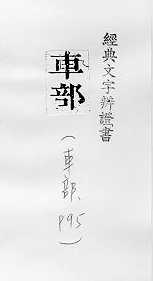 經典文字辨證書
車部
(車部、P95)